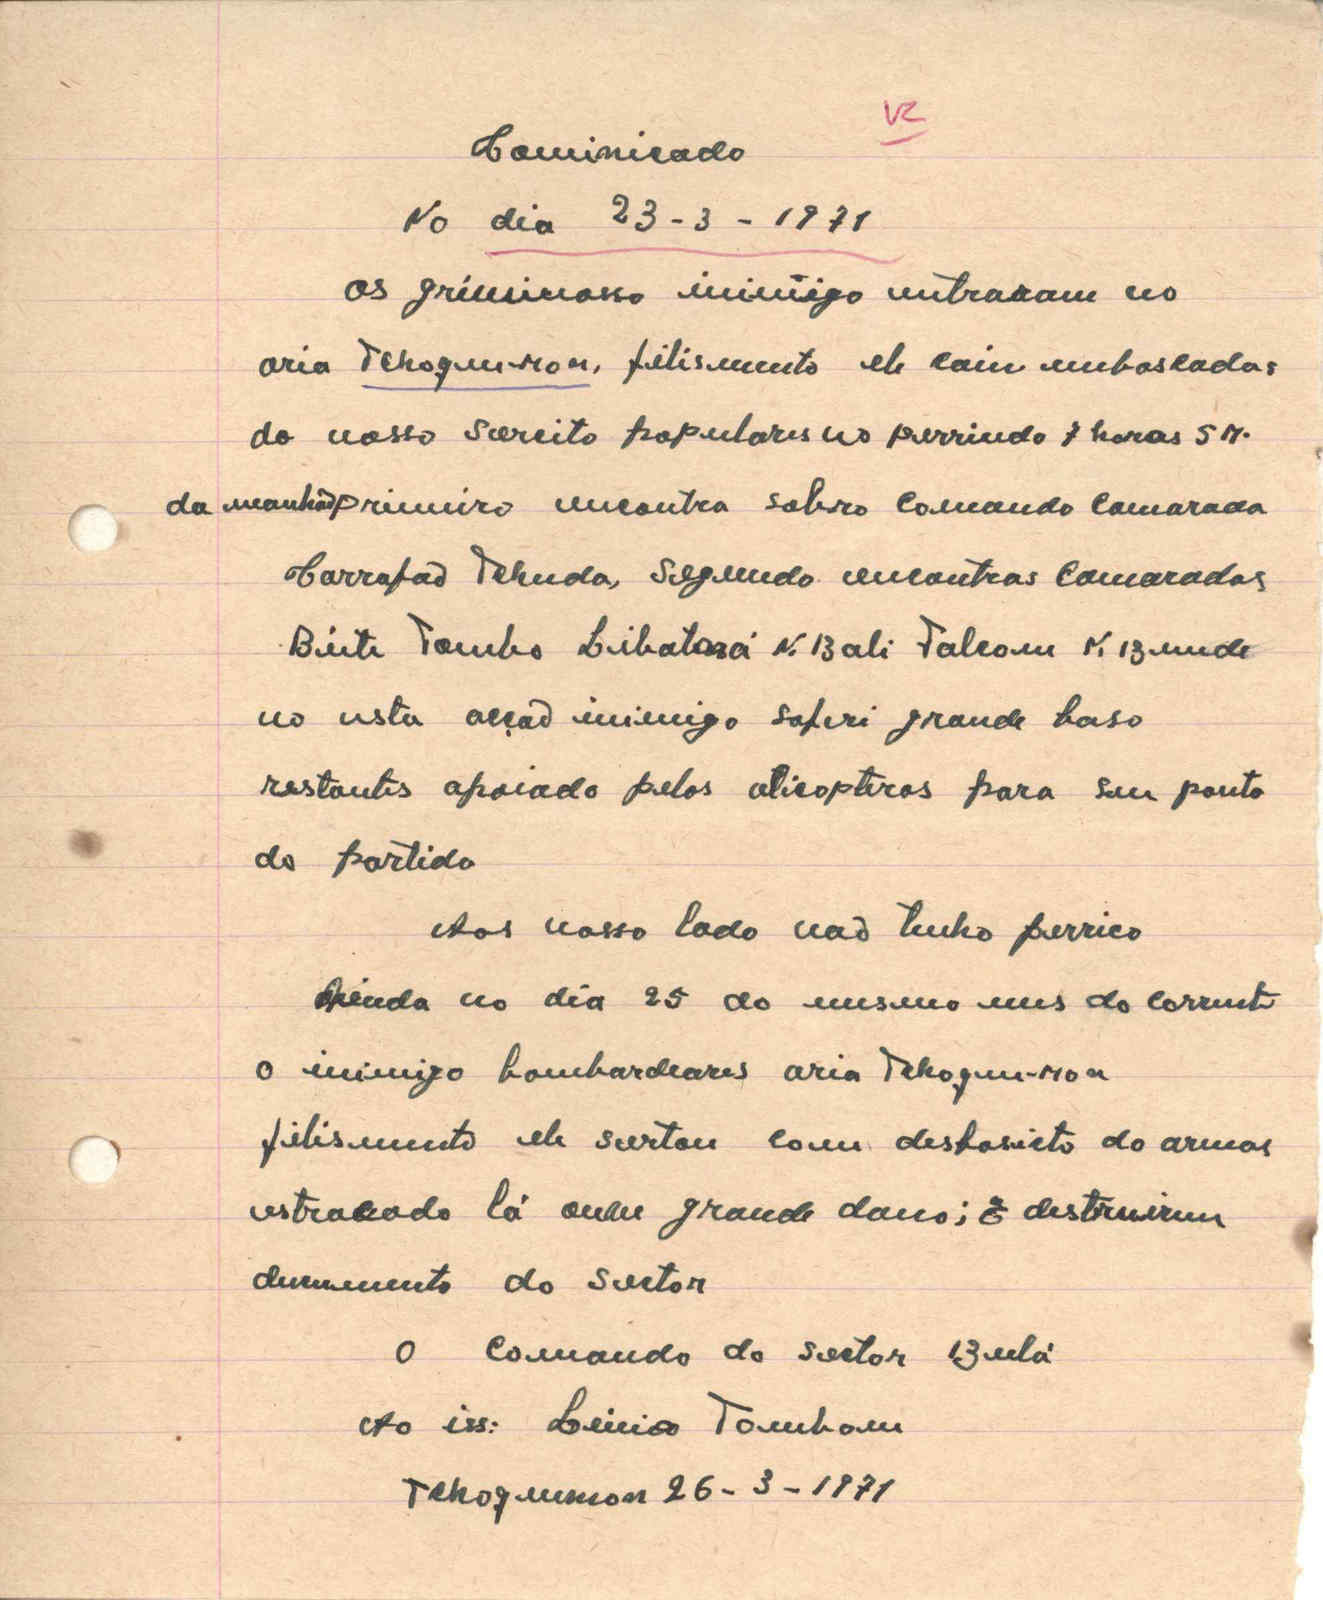 VR
Cominicado
No dia 23-3-1971
os griminosso inimigo entraram no
aria Tchoquemon, filismento ele cain emboscadas
do nosso Sercito populares no perriudo 7 horas 5 M.
da manhão primeiro encontra sobro comando camarada
Carrafão Tchuda, Segundo encontras camaradas
Biute Tombo N. Bali Falcom N. Bunde
no esta acção inimigo soferi grande baso
restantes apoiado pelos alicopteros para seu ponto
do partido
Aos nosso lado não tenho perrico
Ainda no dia 25 do mesmo mes do corrente
o inimigo bombardeares aria Tchoquemon
filismento ele sertou com desposieto do armas
estracado lá ouve grande dano; e destruirem
documento do Sector
O Comando do sector Bulá
Ao iss: Leinio Tombom
Tchoquemon 26-3-1971